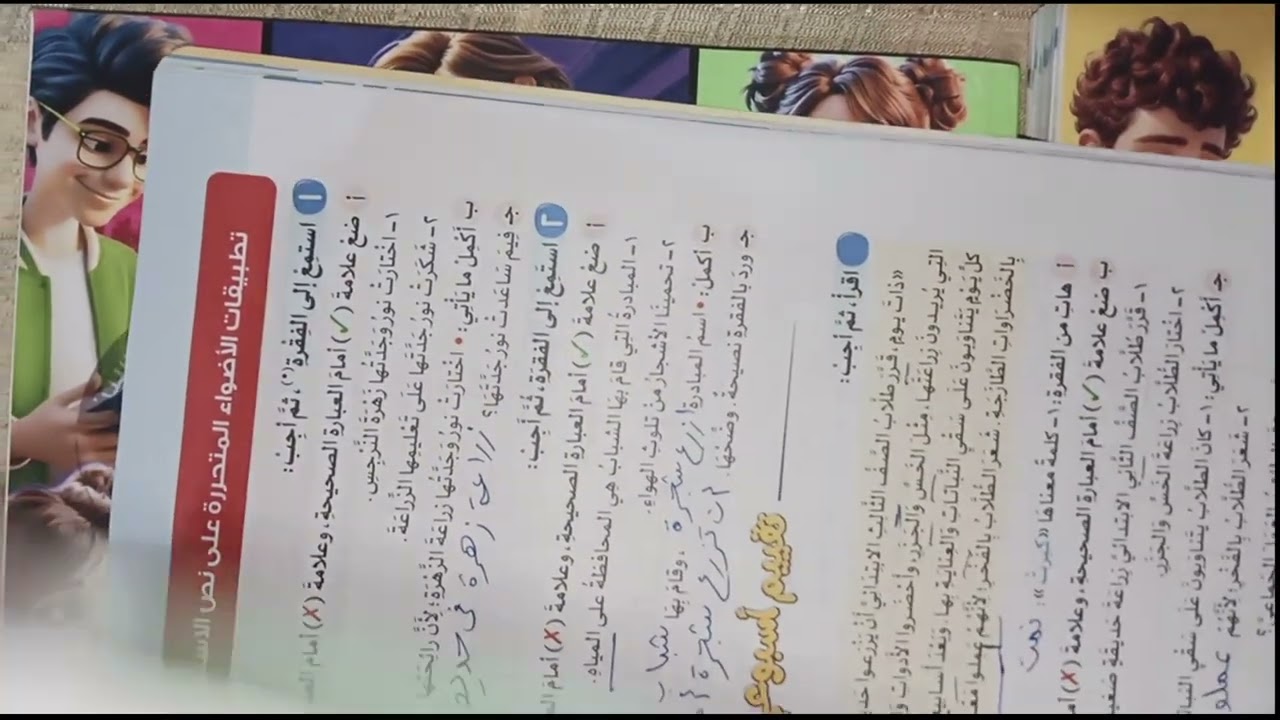 تطبيقات الأضواء المتحررة على نص
١ استمع إلى الفقرة (*)، ثم أجب:
أ ضع علامة (✓) أمام العبارة الصحيحة، وعلامة (X) أمام
١- اختارت نور وجدتها زهرة النرجس.
٢- شكرت نور جدتها على تعليمها الزراعة.
ب أكمل ما يأتي: • اختارت نور وجدتها زراعة الزهرة؛ لأن رائحتها
جـ فيم ساعدت نور جدتها؟ زراعة زهرة في
٢ استمع إلى الفقرة، ثم أجب:
أ ضع علامة (✓) أمام العبارة الصحيحة، وعلامة (X) أمام
١- المبادرة التي قام بها الشباب هي المحافظة على المياه.
٢- تحمينا الأشجار من تلوث الهواء.
ب أكمل: • اسم المبادرة ازرع شجرة، وقام بها شباب
جـ ورد بالفقرة نصيحة. وضحها. من تزرع شجرة
تقييم أسبوعي
اقرأ، ثم أجب:
«ذات يوم، قرر طلاب الصف الثالث الابتدائي أن يزرعوا
التي يريدون زراعتها، مثل الخس والجزر، وأحضروا الأدوات
كل يوم يتناوبون على سقي النباتات والعناية بها. وبعد أسابيع
بالخضراوات الطازجة. شعر الطلاب بالفخر؛ لأنهم عملوا
أ هات من الفقرة: ١- كلمة معناها «كبرت»: نمت
ب ضع علامة (✓) أمام العبارة الصحيحة، وعلامة (X)
١- قرر طلاب الصف الثاني الابتدائي زراعة حديقة
٢- اختار الطلاب زراعة الخس والجزر.
جـ أكمل ما يأتي: ١- كان الطلاب يتناوبون على سقي
٢- شعر الطلاب بالفخر؛ لأنهم عملوا